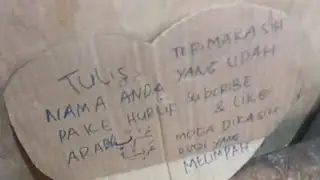 TULIS
NAMA ANDA
PAKE HURUF
ARAB
TERIMAKASIH
YANG UDAH
SUBCRIBE
& LIKE
MOGA DIKASIH
YANG
MELIMPAH